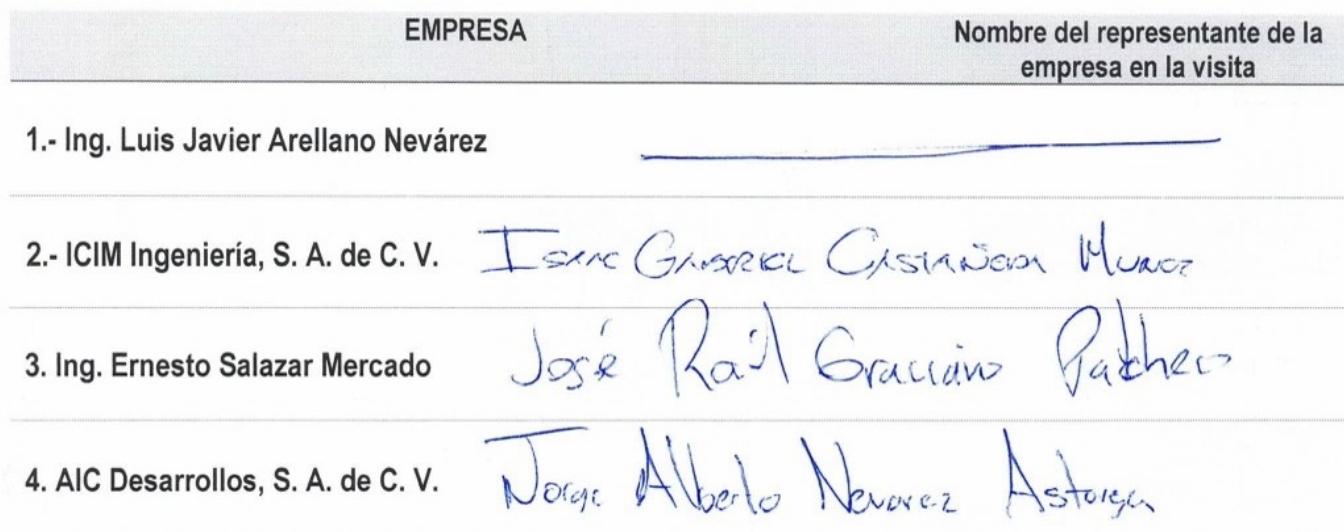 EMPRESA
Nombre del representante de la
empresa en la visita
1.- Ing. Luis Javier Arellano Nevárez
2.- ICIM Ingeniería, S. A. de C. V. Isaac Gabriel Castañeda Munoz
3. Ing. Ernesto Salazar Mercado José Raúl Graciano Pacheco
4. AIC Desarrollos, S. A. de C. V. Jorge Alberto Nevarez Astorga